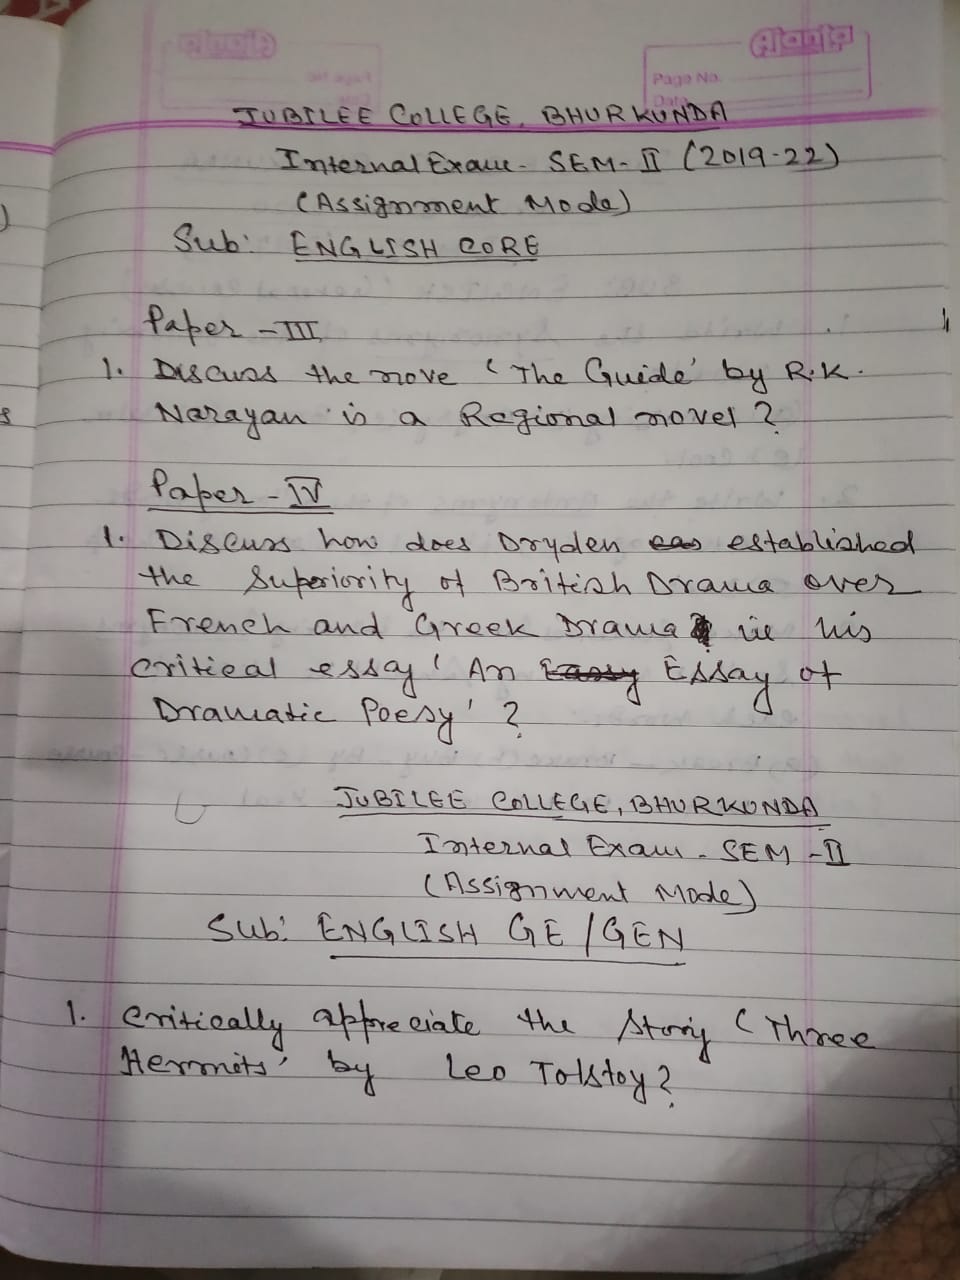 Atlanta
Page No.
Date
JUBILEE COLLEGE, BHURKUNDA
Internal Exam - SEM-II (2019-22)
(Assignment Mode)
Sub: ENGLISH CORE
Paper - III
1. Discuss the nove 'The Guide' by R.K.
Narayan is a Regional novel?
Paper - IV
1. Discuss how does Dryden established
the Superiority of British Drama over
French and Greek Drama in his
critical essay 'An Essay of
Dramatic Poesy'?
JUBILEE COLLEGE, BHURKUNDA
Internal Exam - SEM - II
(Assignment Mode)
Sub: ENGLISH GE/GEN
1. Critically appreciate the Story 'Three
Hermits' by Leo Tolstoy?